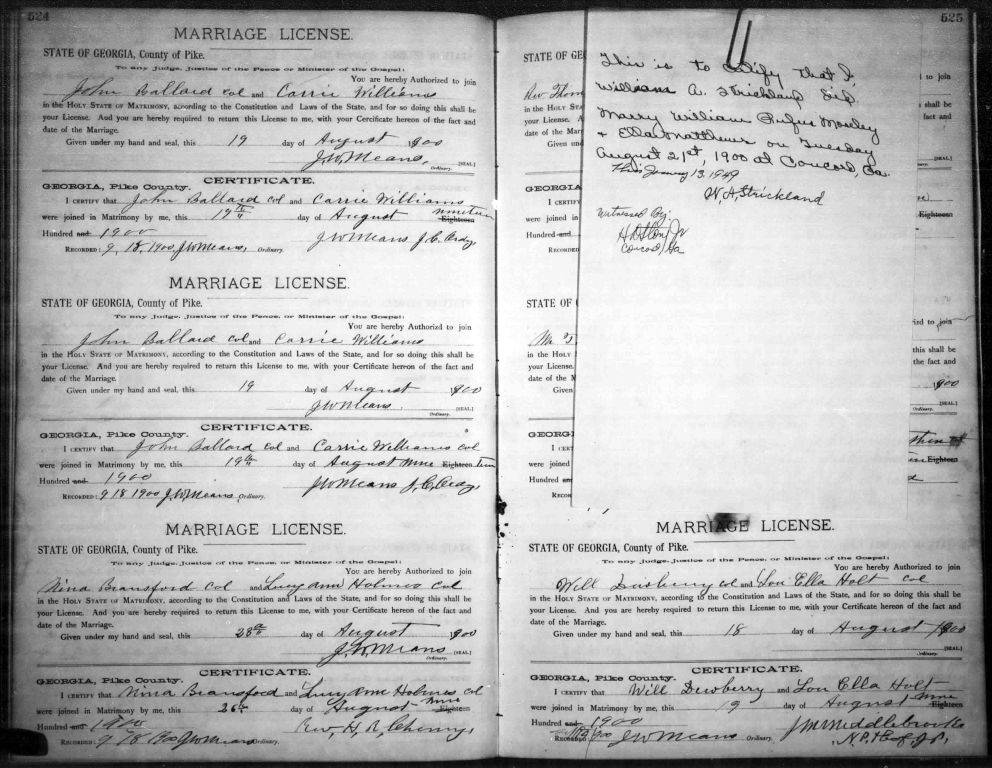 524
MARRIAGE LICENSE.
STATE OF GEORGIA, County of Pike.
To any Judge, Justice of the Peace or Minister of the Gospel:
You are hereby Authorized to join
John Ballard col and Carrie Williams
in the HOLY STATE OF MATRIMONY, according to the Constitution and Laws of the State, and for so doing this shall be
your License. And you are hereby required to return this License to me, with your Certificate hereon of the fact and
date of the Marriage.
Given under my hand and seal, this 19 day of August 1900
J.W. Means, [SEAL]
Ordinary.
CERTIFICATE.
GEORGIA, Pike County.
I CERTIFY that John Ballard col and Carrie Williams
were joined in Matrimony by me, this 19th day of August nineteen Eighteen
Hundred and 1900
J W Means J.C. Ordy,
RECORDED: 9, 18, 1900 J.W. Means, Ordinary.
MARRIAGE LICENSE.
STATE OF GEORGIA, County of Pike.
To any Judge, Justice of the Peace, or Minister of the Gospel:
You are hereby Authorized to join
John Ballard col and Carrie Williams
in the HOLY STATE OF MATRIMONY, according to the Constitution and Laws of the State, and for so doing this shall be
your License. And you are hereby required to return this License to me, with your Certificate hereon of the fact and
date of the Marriage.
Given under my hand and seal, this 19 day of August 1900
J.W. Means. [SEAL]
Ordinary.
CERTIFICATE.
GEORGIA, Pike County.
I CERTIFY that John Ballard col and Carrie Williams col
were joined in Matrimony by me, this 19th day of August Nine Eighteen teen
Hundred and 1900
J W Means J.C. Ordy,
RECORDED: 9 18 1900 J.W. Means, Ordinary.
MARRIAGE LICENSE.
STATE OF GEORGIA, County of Pike.
To any Judge, Justice of the Peace, or Minister of the Gospel:
You are hereby Authorized to join
Nina Bransford col and Lucy Ann Holmes Col
in the HOLY STATE OF MATRIMONY, according to the Constitution and Laws of the State, and for so doing this shall be
your License. And you are hereby required to return this License to me, with your Certificate hereon of the fact and
date of the Marriage.
Given under my hand and seal, this day of August 1900
J.W. Means [SEAL]
Ordinary.
CERTIFICATE.
GEORGIA, Pike County.
I CERTIFY that Nina Bransford and Lucy Ann Holmes col
were joined in Matrimony by me, this 26th day of August Nine Eighteen
Hundred and 1900
Rev, H. R. Cherry,
RECORDED: 9 18 1900 J.W. Means Ordinary.
525
This is to Certify that I,
William A. Strickland Did
Marry William Rufus Mosley
& Ella Matthews on Tuesday
August 21st, 1900 at Concord, Ga.
This January 13, 1949
W. A. Strickland
Witnessed By:
Concord, Ga
STATE OF GE
Rev Thom
in the HOLY
your License. A
date of the Mar
Given und
to join
shall be
fact and
[SEAL]
GEORGIA
I CERTIFY
were joined in
Hundred and
RECORDED
Eighteen
STATE OF
in the HOLY
your License.
date of the M
Given
ized to join
this shall be
fact and
1900
[SEAL]
Ordinary.
GEORGI
I CERT
were joined
Hundred and
RECOR
Eighteen
MARRIAGE LICENSE.
STATE OF GEORGIA, County of Pike.
To any Judge, Justice of the Peace, or Minister of the Gospel:
You are hereby Authorized to join
Will Dusberry col and Lou Ella Holt col
in the HOLY STATE OF MATRIMONY, according to the Constitution and Laws of the State, and for so doing this shall be
your License. And you are hereby required to return this License to me, with your Certificate hereon of the fact and
date of the Marriage.
Given under my hand and seal, this 18 day of August 1900
[SEAL]
Ordinary.
CERTIFICATE.
GEORGIA, Pike County.
I CERTIFY that Will Dewberry and Lou Ella Holt
were joined in Matrimony by me, this 19 day of August Nine Eighteen
Hundred and 1900
J M Middlebrooks
RECORDED: J W Means Ordinary.
N.P. & Exof. J.P.